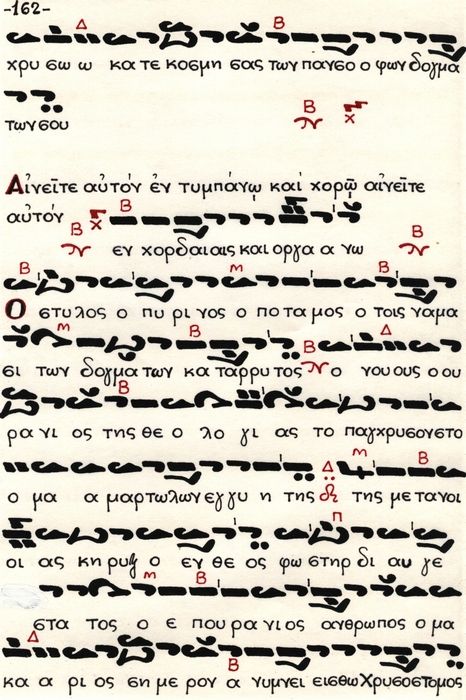 -162-
χρυ σω ω κα τε κοσμη σας των παν σο ο φων δογμα
των σου
Αἰνεῖτε αὐτόν ἐν τυμπάνῳ καί χορῷ αἰνεῖτε
αὐτόν
εν χορδαι αις και οργα α νω
Ο στυλος ο πυ ρι νος ο ποτα μος ο τοις ναμα
σι των δογμα των κα ταρρυ τος ο νους ο ου
ρα νι ος της θε ο λο γι ας το παγχρυσον στο
ο μα α μαρτωλων εγ γυ η της της με τα νοι
οι ας κη ρυξ ο εν θε ος φω στηρ δι αυ γε
στα τος ο ε που ρα νι ος ανθρωπος ο μα
κα α ρι ος ση με ρον α νυ μνει εισθω Χρυσοστομος